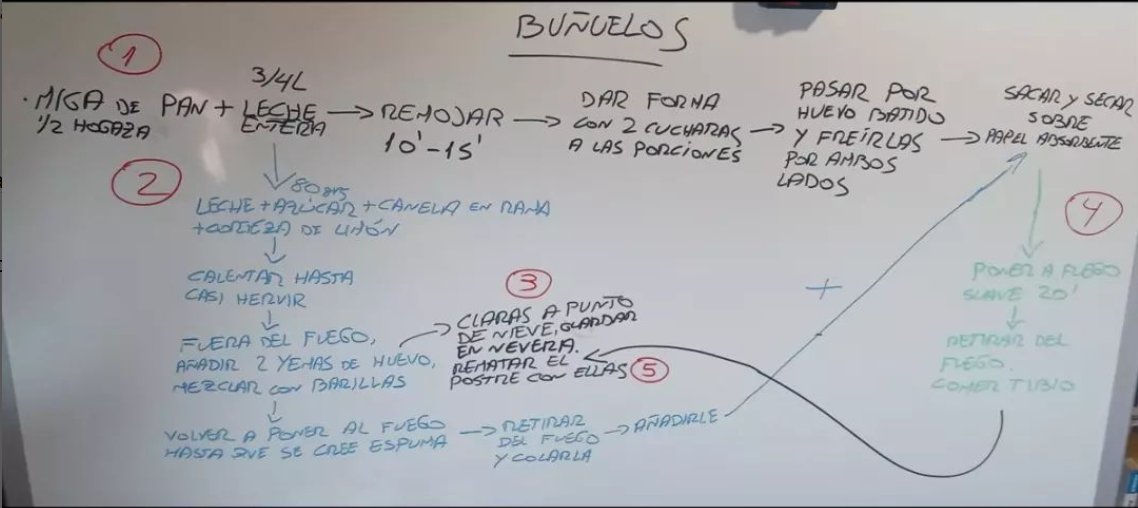 BUÑUELOS
1
· MIGA DE PAN + LECHE
1/2 HOGAZA
3/4L
ENTERA
REMOJAR
10'-15'
DAR FORMA
CON 2 CUCHARAS
A LAS PORCIONES
PASAR POR
HUEVO BATIDO
Y FREÍRLAS
POR AMBOS
LADOS
SACAR Y SECAR
SOBRE
PAPEL ABSORBENTE
2
80 grs
LECHE + AZÚCAR + CANELA EN RAMA
+ CORTEZA DE LIMÓN
CALENTAR HASTA
CASI HERVIR
FUERA DEL FUEGO,
AÑADIR 2 YEMAS DE HUEVO,
MEZCLAR CON BARILLAS
3
CLARAS A PUNTO
DE NIEVE, GUARDAR
EN NEVERA.
REMATAR EL
POSTRE CON ELLAS 5
VOLVER A PONER AL FUEGO
HASTA QUE SE CREE ESPUMA
RETIRAR
DEL FUEGO
Y COLARLA
AÑADIRLE
+
4
PONER A FUEGO
SUAVE 20'
RETIRAR DEL
FUEGO.
COMER TIBIO